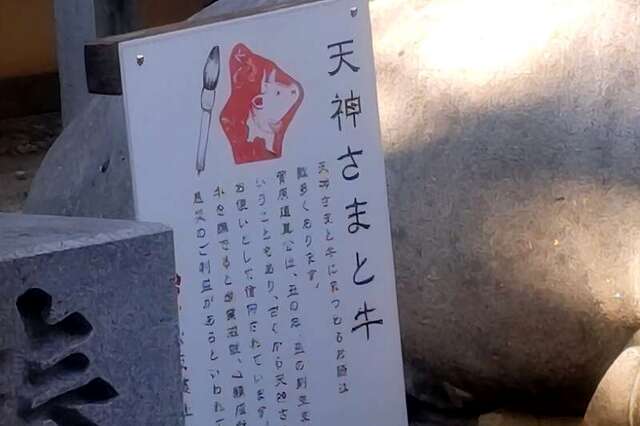 天神さまと牛
天神さまと牛にまつわるお話は
数多くあります。
菅原道真公は、丑の年、丑の刻生ま
いうこともあり、古くから天神さ
お使いとして信仰されています
牛を撫でると
息災のご利益があるといわれて